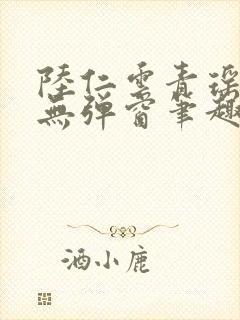 陸仁雲青瑶
無彈窗筆趣
酒小鹿